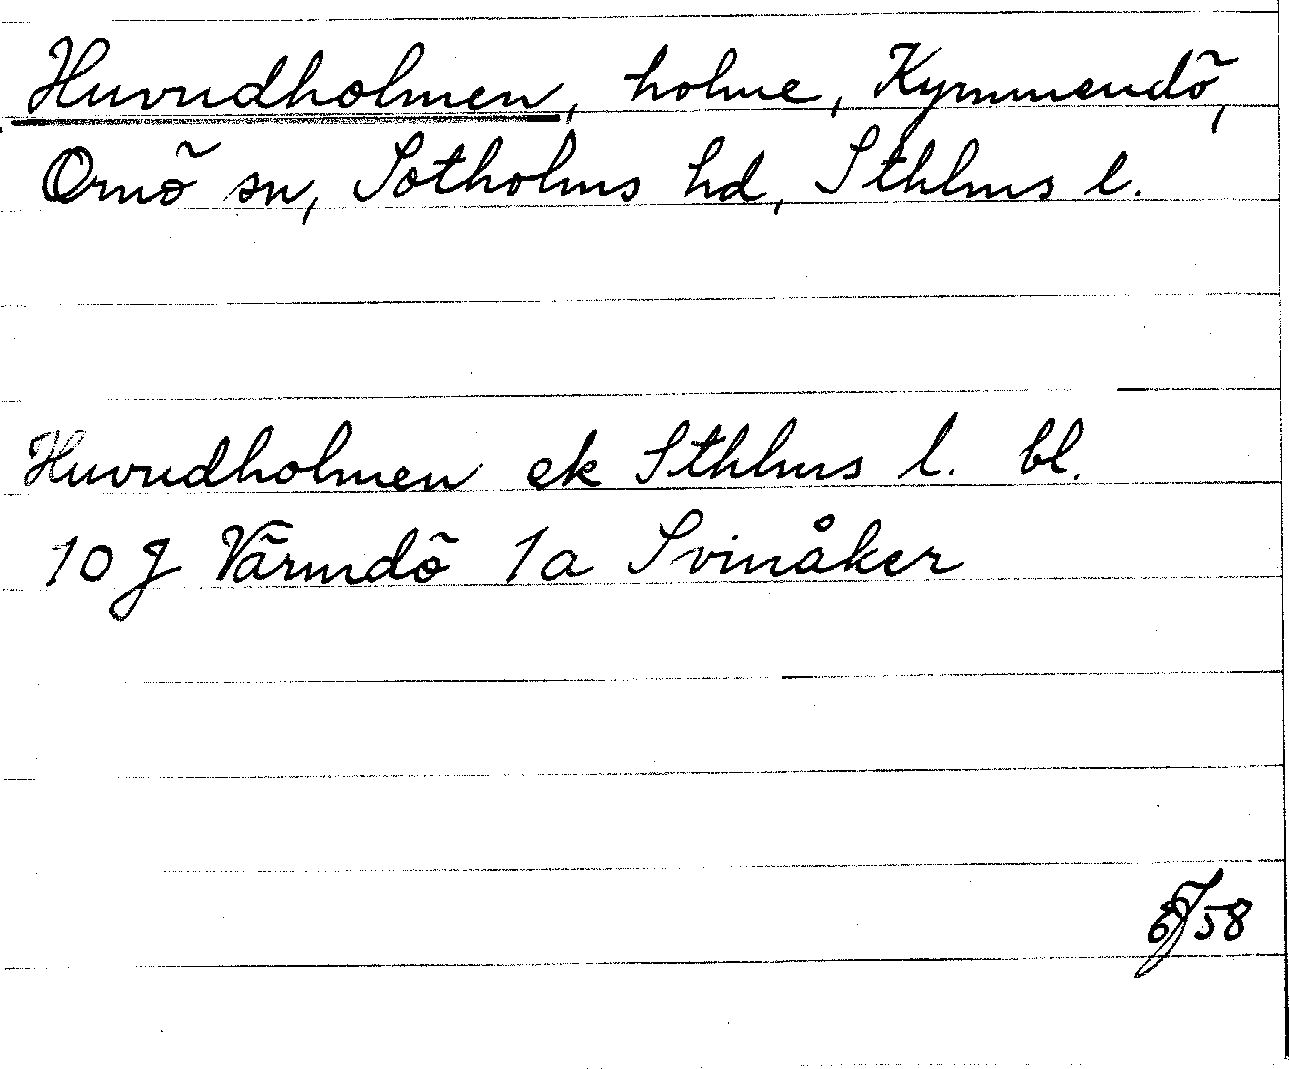 Huvudholmen, holme, Kymmendö,
Ornö sn, Sotholms hd, Sthlms l.
Huvudholmen ek Sthlms l. bl.
10 J Värmdö 1a Svinåker
58